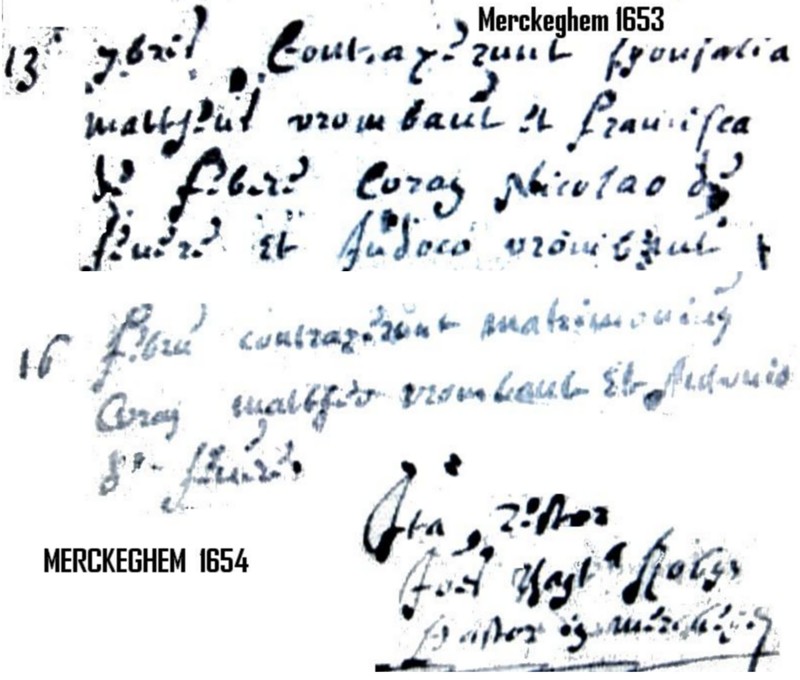 Merckeghem 1653
13 xbris Contraxerunt sponsalia
mattheus vrombaut et francisca
de febure Coram Nicolao de
feure et Judoco vrombaut
16 contraxerunt matrimonium
Coram mattheo vrombaut Et Antonio
de feure
Ita Testor
Joes
pastor in
MERCKEGHEM 1654